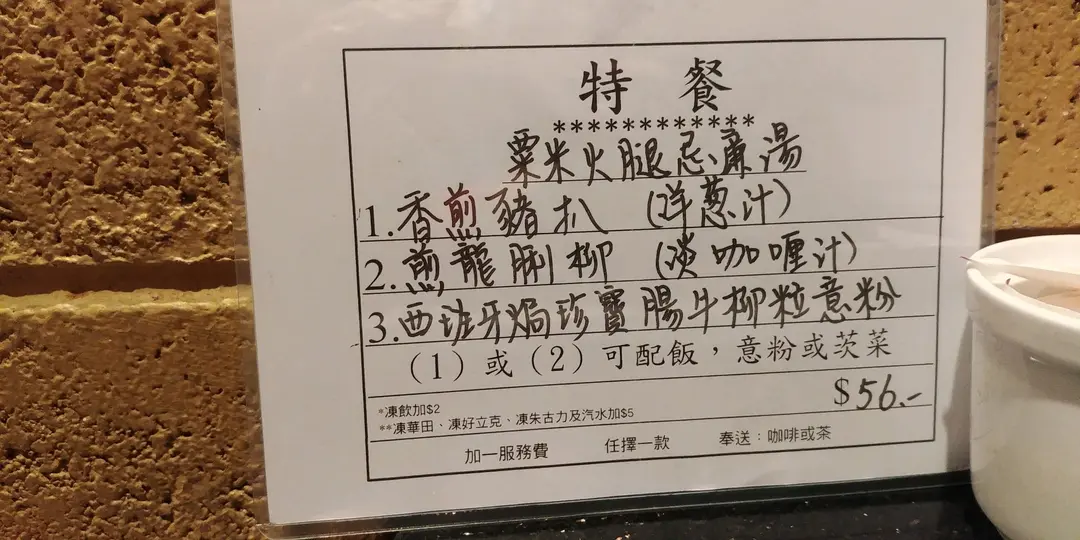 特 餐
************
粟米火腿忌廉湯
1.香煎豬扒 (洋葱汁)
2.煎龍脷柳 (淡咖喱汁)
3.西班牙焗珍寶腸牛柳粒意粉
(1)或(2)可配飯，意粉或茨菜
$56.-
*凍飲加$2
**凍華田、凍好立克、凍朱古力及汽水加$5
加一服務費 任擇一款 奉送：咖啡或茶